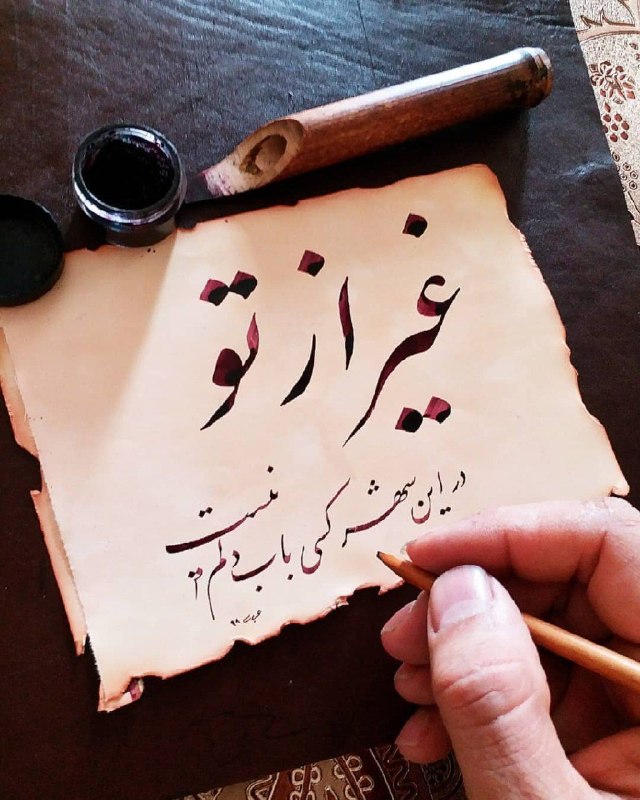 غیر از تو
در این شهر کسی باب دلم نیست
۹۸